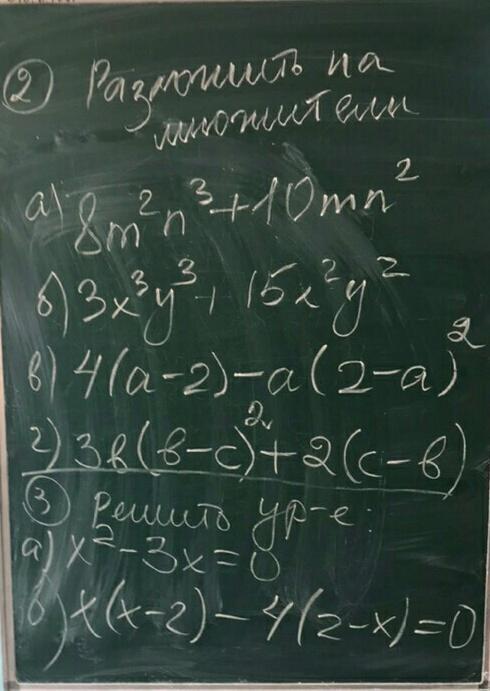 ② Разложить на
множители
а) 8m²n³+10mn²
б) 3x³y³+15x²y²
в) 4(a-2)-a(2-a)²
г) 3в(в-с)²+2(с-в)
③ Решить ур-е:
а) x²-3x=0
б) x(x-2)-4(2-x)=0